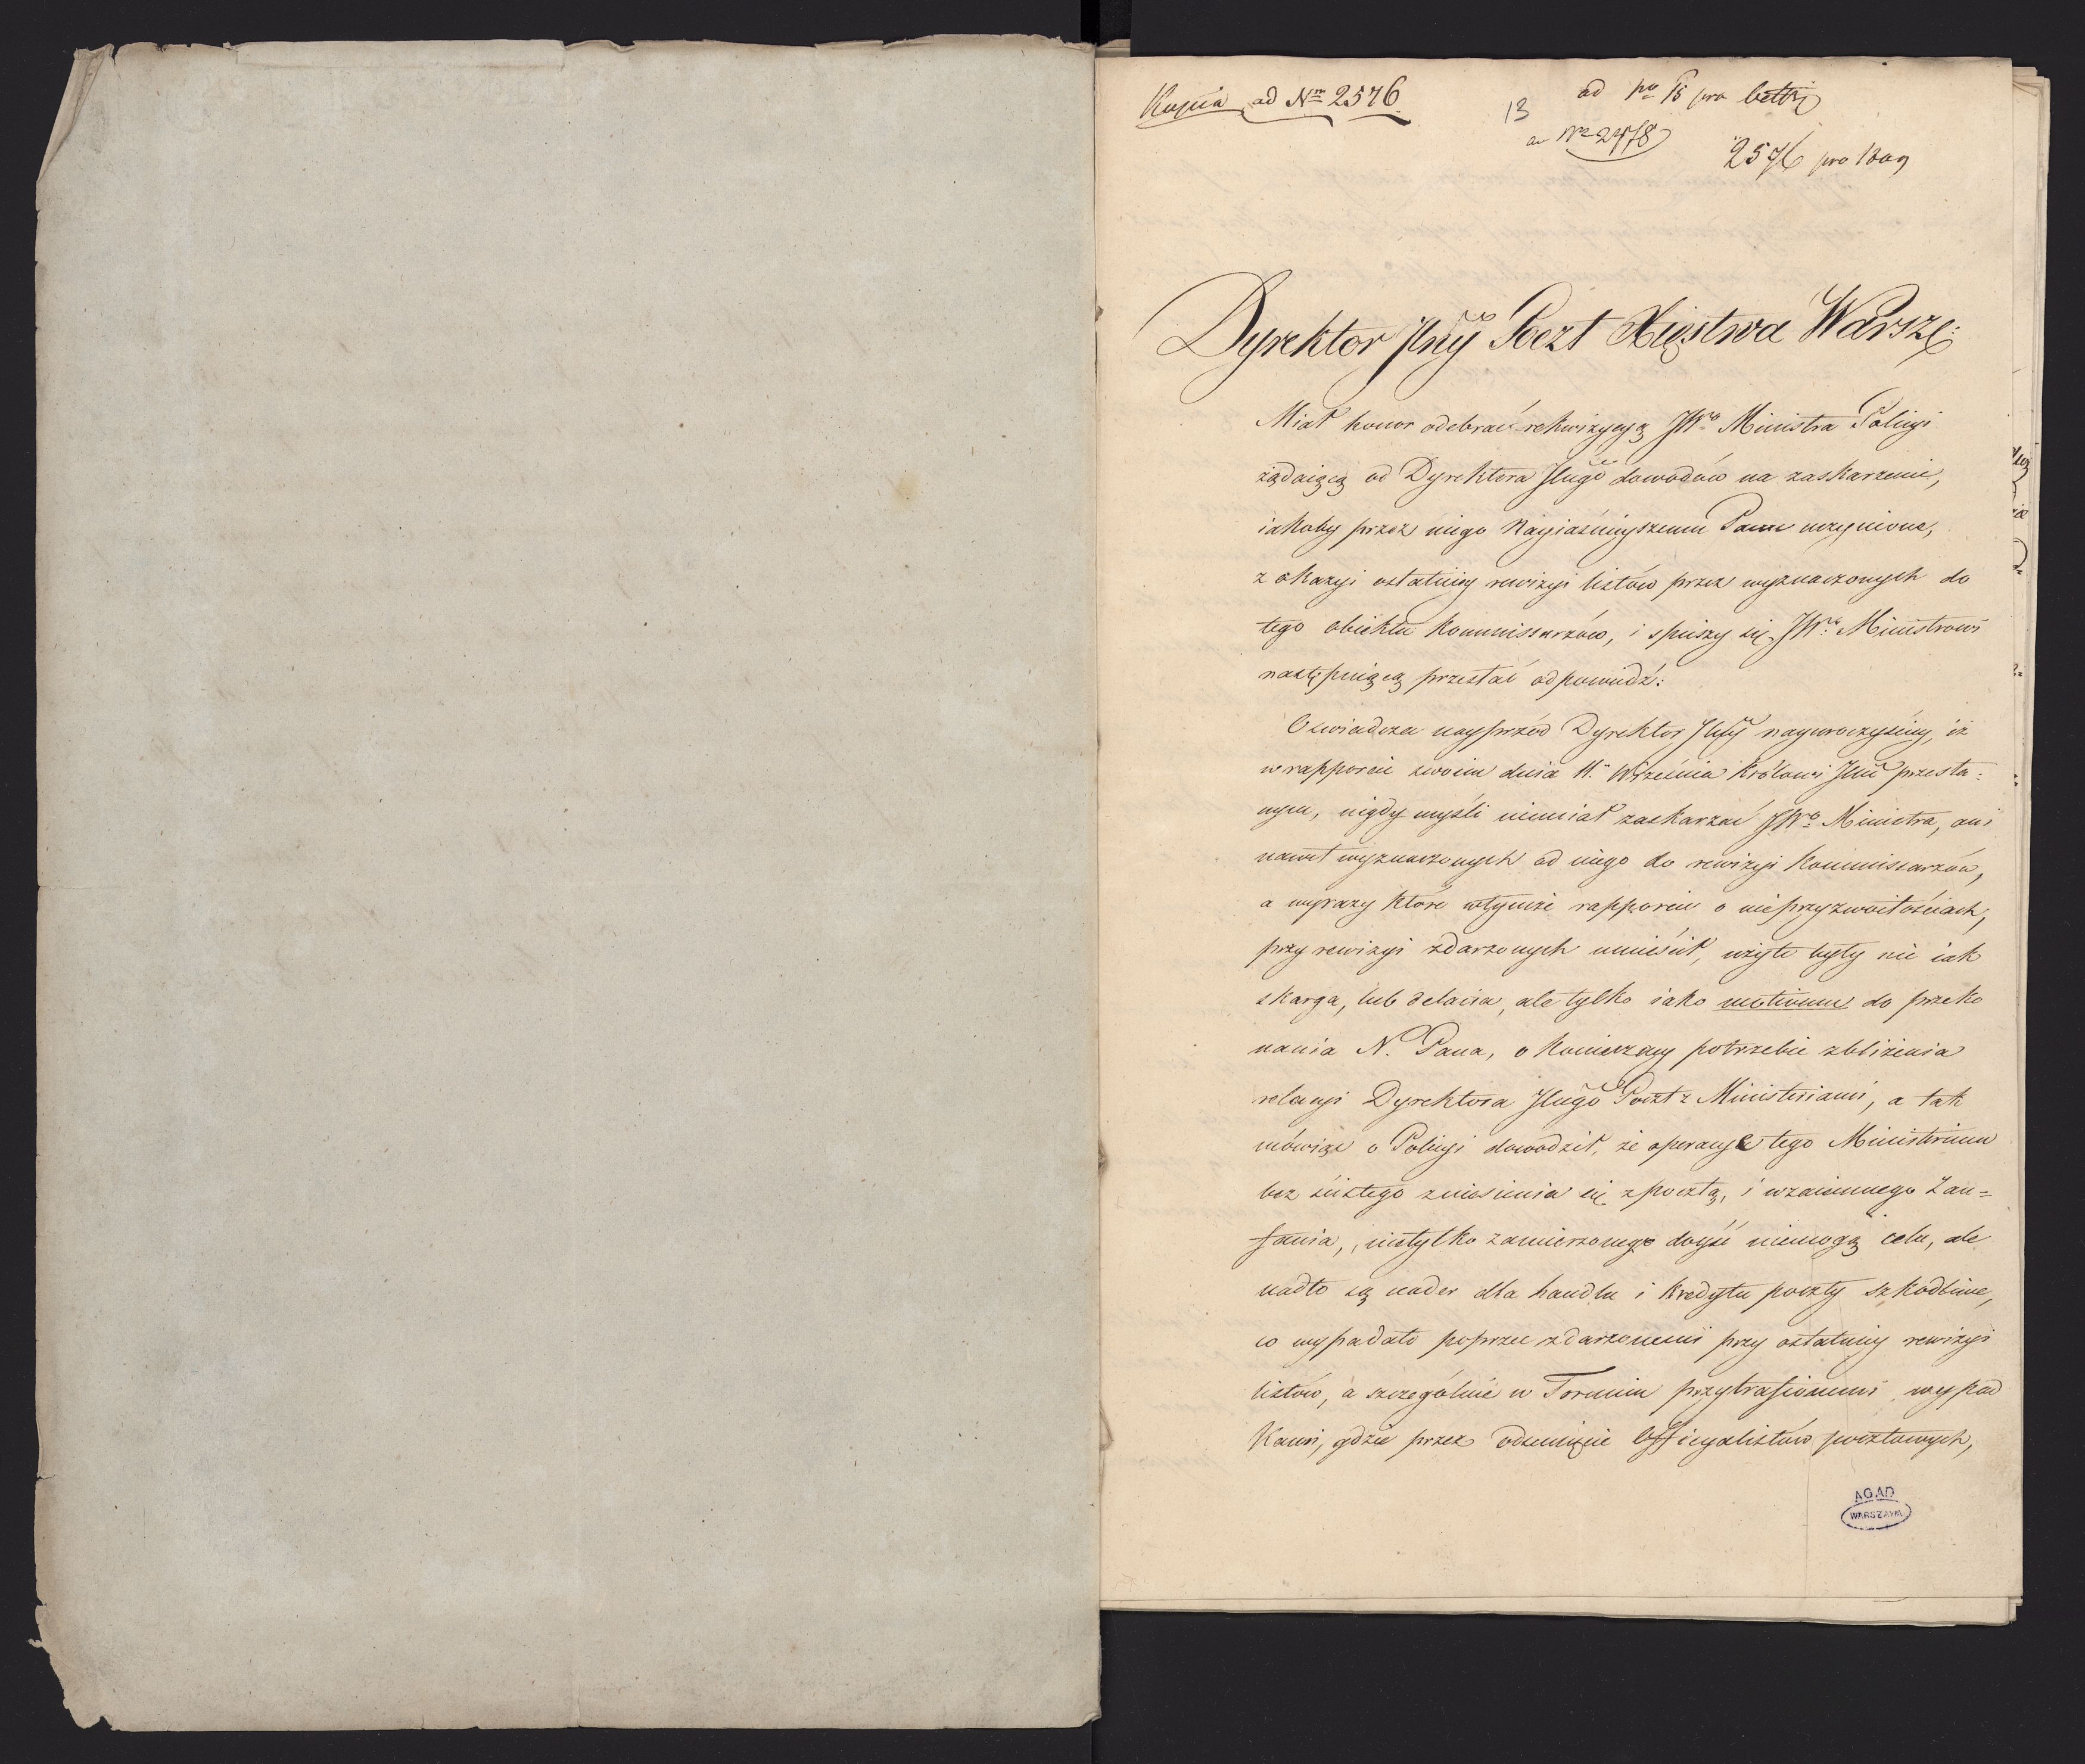 Kopiia ad Nrm 2576.
13
ad
ad Nr 2478
2576 pro 1809
Dyrektor Jlny Poczt Xięstwa Warszę:
Miał honor odebrać rekwizycyą JWo Ministra Policyi
żądaiącą od Dyrektora Jlnego dowodów na zaskarzenie,
iakoby przez niego Nayiaśnieyszemu Panu uczynione,
z okazyi ostatniey rewizyi listów przez wyznaczonych do
tego obiektu Kommissarzów, i spieszy się JWu Ministrowi
następuiącą przesłać odpowiedź:
Oświadcza nayprzód Dyrektor Jlny nayuroczyściey, iż
w rapporcie swoim dnia 11. Września Królowi Jmci przesła:
nym, nigdy myśli niemiał zaskarzać JWo Ministra, ani
nawet wyznaczonych od niego do rewizyi Kommissarzów,
a wyrazy które wtymże rapporcie o nieprzyzwoitościach,
przy rewizyi zdarzonych umieścił, użyte były nie iak
skarga, lub delacia, ale tylko iako motivum do przeko
nania N. Pana, o konieczney potrzebie zbliżenia
relacyi Dyrektora Jlnego Poczt z Ministeriami, a tak
mówiąc o Policyi dowodził, że operacye tego Ministerium
bez ścisłego zniesienia się z pocztą, i wzaiemnego Zau=
fania, nietylko zamierzonego doyść niemogą celu, ale
nadto są nader dla handlu i kredytu poczty szkodliwe,
co wypadało poprzeć zdarzonemi przy ostatniey rewizyi
listów, a szczególnie w Toruniu przytrafionemi wypad
kami, gdzie przez odsunięcie Officyalistów pocztowych,
AGAD
WARSZAWA